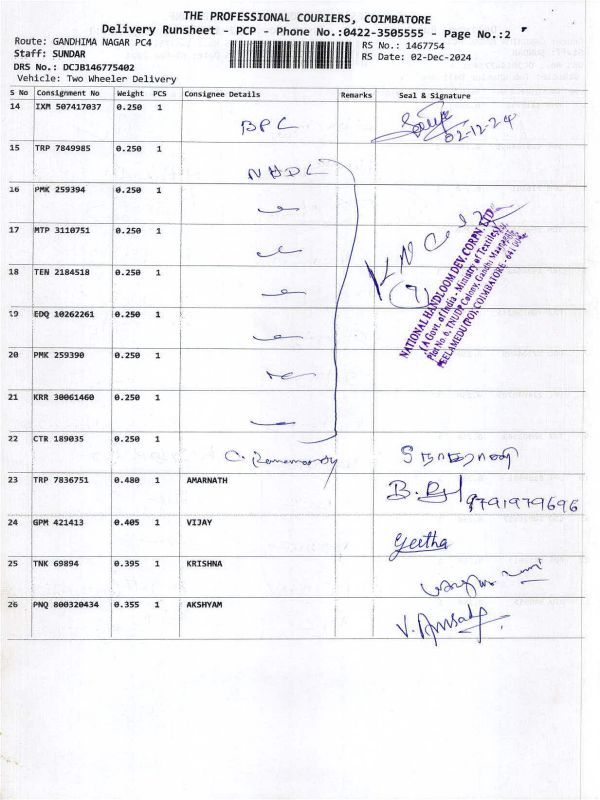 THE PROFESSIONAL COURIERS, COIMBATORE
Delivery Runsheet - PCP - Phone No.:0422-3505555 - Page No.:2
Route: GANDHIMA NAGAR PC4
RS No.: 1467754
Staff: SUNDAR
RS Date: 02-Dec-2024
DRS No.: DCJB146775402
Vehicle: Two Wheeler Delivery
S No Consignment No Weight PCS Consignee Details Remarks Seal & Signature
14 IXM 507417037 0.250 1 BPC
02-12-24
15 TRP 7849985 0.250 1 NHDC
16 PMK 259394 0.250 1
17 MTP 3110751 0.250 1
18 TEN 2184518 0.250 1
(7)
NATIONAL HANDLOOM DEV. CORPN. LTD
(A Govt. of India - Ministry of Textiles)
Plot No. 6, TNUDP Colony, Gandhi Maanagar
PEELAMEDU (PO), COIMBATORE - 641 004.
19 EDQ 10262261 0.250 1
20 PMK 259390 0.250 1
21 KRR 30061460 0.250 1
22 CTR 189035 0.250 1 C. Ramamoorthy
23 TRP 7836751 0.480 1 AMARNATH 9791979696
24 GPM 421413 0.405 1 VIJAY Geetha
25 TNK 69894 0.395 1 KRISHNA
26 PNQ 800320434 0.355 1 AKSHYAM